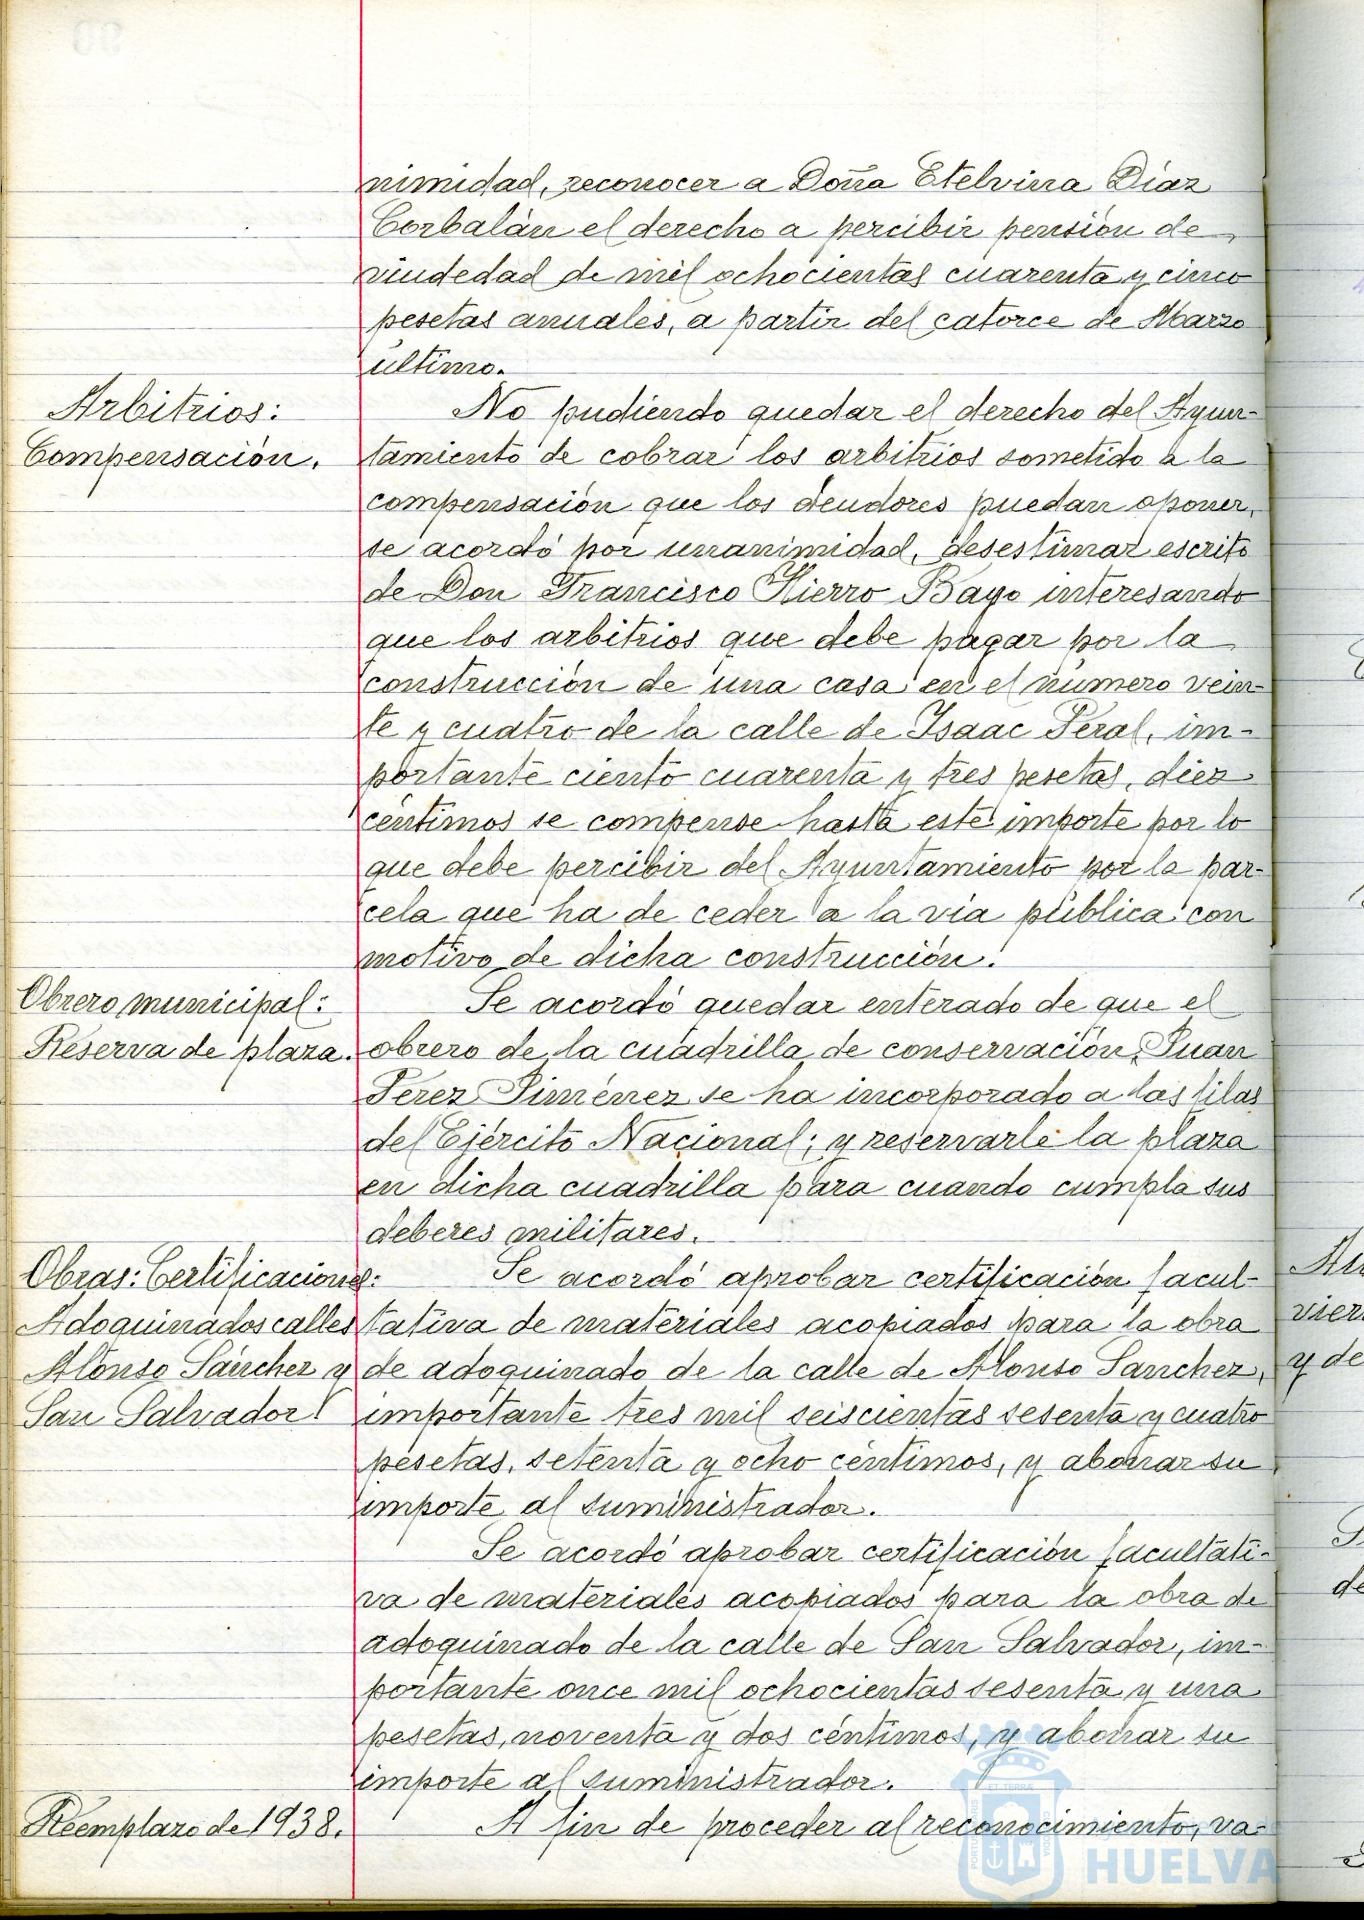 nimidad, reconocer a Doña Etelvina Díaz
Corbalán el derecho a percibir pensión de
viudedad de mil ochocientas cuarenta y cinco
pesetas anuales, a partir del catorce de Marzo
último.
Arbitrios:
Compensación.
No pudiendo quedar el derecho del Ayun-
tamiento de cobrar los arbitrios sometido a la
compensación que los deudores puedan oponer,
se acordó por unanimidad, desestimar escrito
de Don Francisco Hierro Bayo interesando
que los arbitrios que debe pagar por la
construcción de una casa en el número vein-
te y cuatro de la calle de Isaac Peral, im-
portante ciento cuarenta y tres pesetas, diez
céntimos se compense hasta este importe por lo
que debe percibir del Ayuntamiento por la par-
cela que ha de ceder a la vía pública con
motivo de dicha construcción.
Obrero municipal:
Reserva de plaza.
Se acordó quedar enterado de que el
obrero de la cuadrilla de conservación, Juan
Perez Jiménez se ha incorporado a las filas
del Ejército Nacional; y reservarle la plaza
en dicha cuadrilla para cuando cumpla sus
deberes militares.
Obras: Certificaciones:
Adoquinados calles
Alonso Sánchez y
San Salvador
Se acordó aprobar certificación facul-
tativa de materiales acopiados para la obra
de adoquinado de la calle de Alonso Sanchez,
importante tres mil seiscientas sesenta y cuatro
pesetas, setenta y ocho céntimos, y abonar su
importe al suministrador.
Se acordó aprobar certificación facultati-
va de materiales acopiados para la obra de
adoquinado de la calle de San Salvador, im-
portante once mil ochocientas sesenta y una
pesetas, noventa y dos céntimos, y abonar su
importe al suministrador.
Reemplazo de 1938.
A fin de proceder al reconocimiento, va-
HUELVA